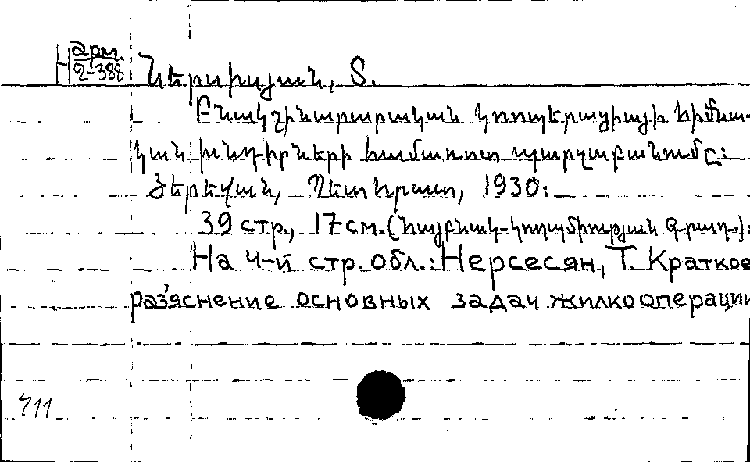 Н арм.
2-388
Ներսիսյան, Տ.
Բնակշինարարական կոոպերացիայի հիմնա-
կան խնդիրների համառոտ պարզաբանումը:
Յերեվան, Պետհրատ, 1930:
39 стр., 17 см. (Հայբնակ-կոոպմիության գրադ.):
На 4-й стр. обл.: Нерсесян, Т. Краткое
раз'яснение основных задач жилкооперации
711